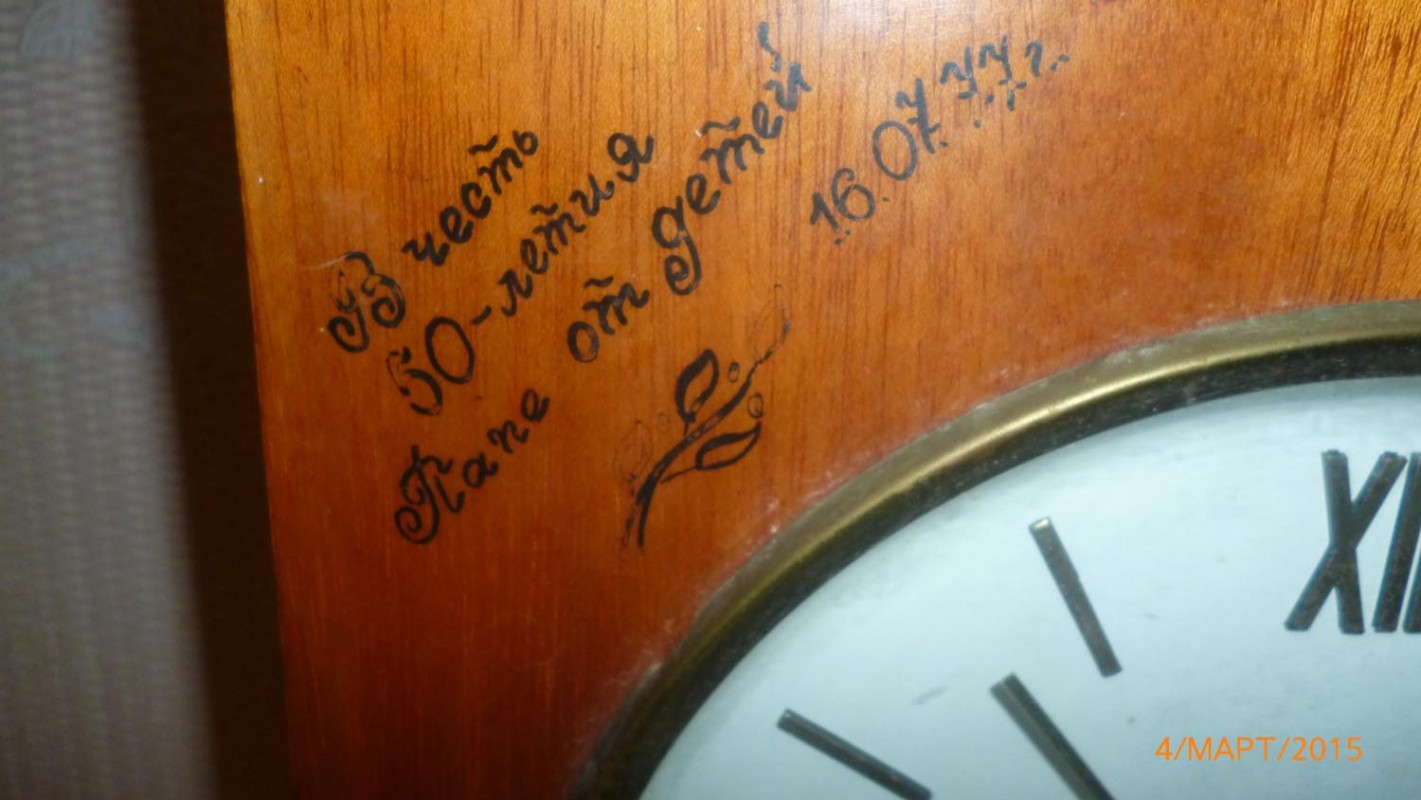 В честь
50-летия
Папе от детей
16.07.77г.
XII
4/МАРТ/2015